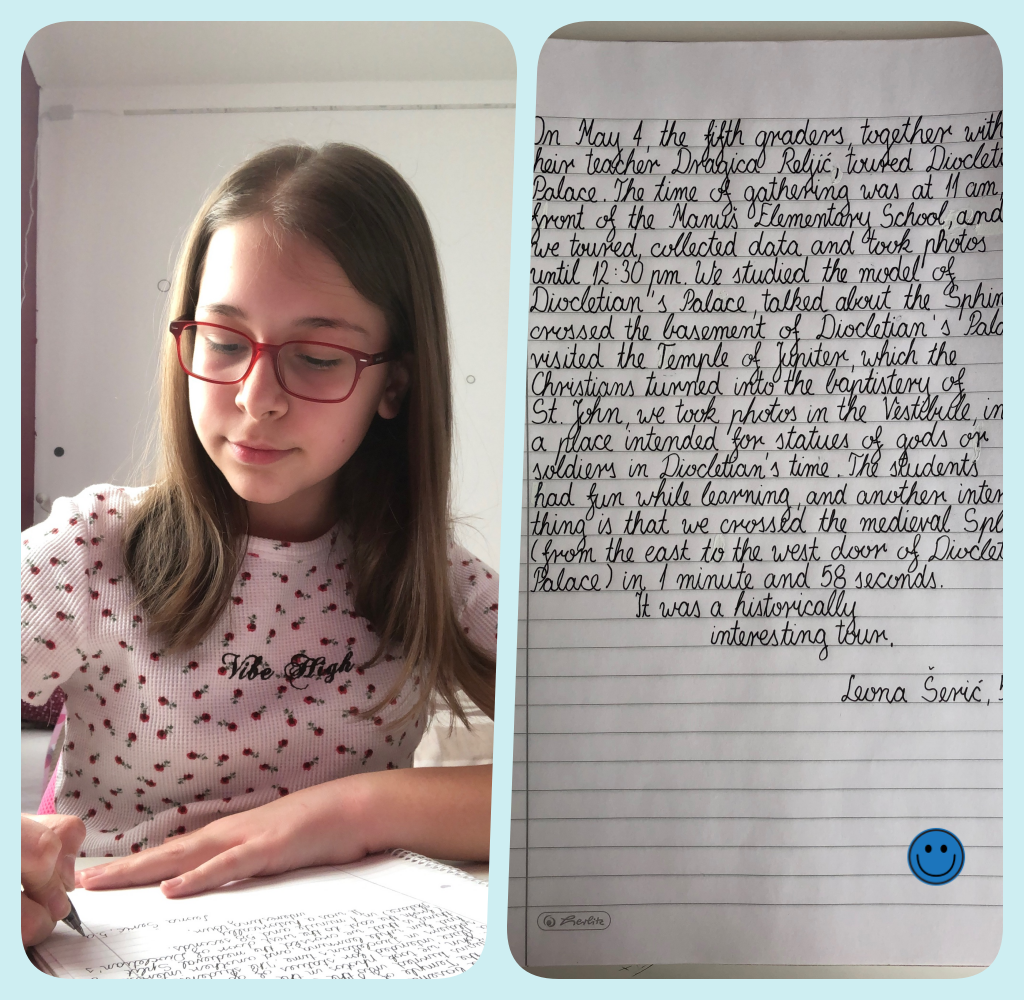 Vibe High
On May 4, the fifth graders, together with
heir teacher Dragica Reljić, toured Diocleti
Palace. The time of gathering was at 11 am,
front of the Manuš Elementary School, and
we toured, collected data and took photos
until 12:30 pm. We studied the model of
Diocletian's Palace, talked about the Sphin
crossed the basement of Diocletian's Pala
visited the Temple of Jupiter, which the
Christians turned into the baptistery of
St. John, we took photos in the Vestibule, in
a place intended for statues of gods or
soldiers in Diocletian's time. The students
had fun while learning, and another inter
thing is that we crossed the medieval Spl
(from the east to the west door of Dioclet
Palace) in 1 minute and 58 seconds.
It was a historically
interesting tour.
Leona Šerić, 5
Herlitz